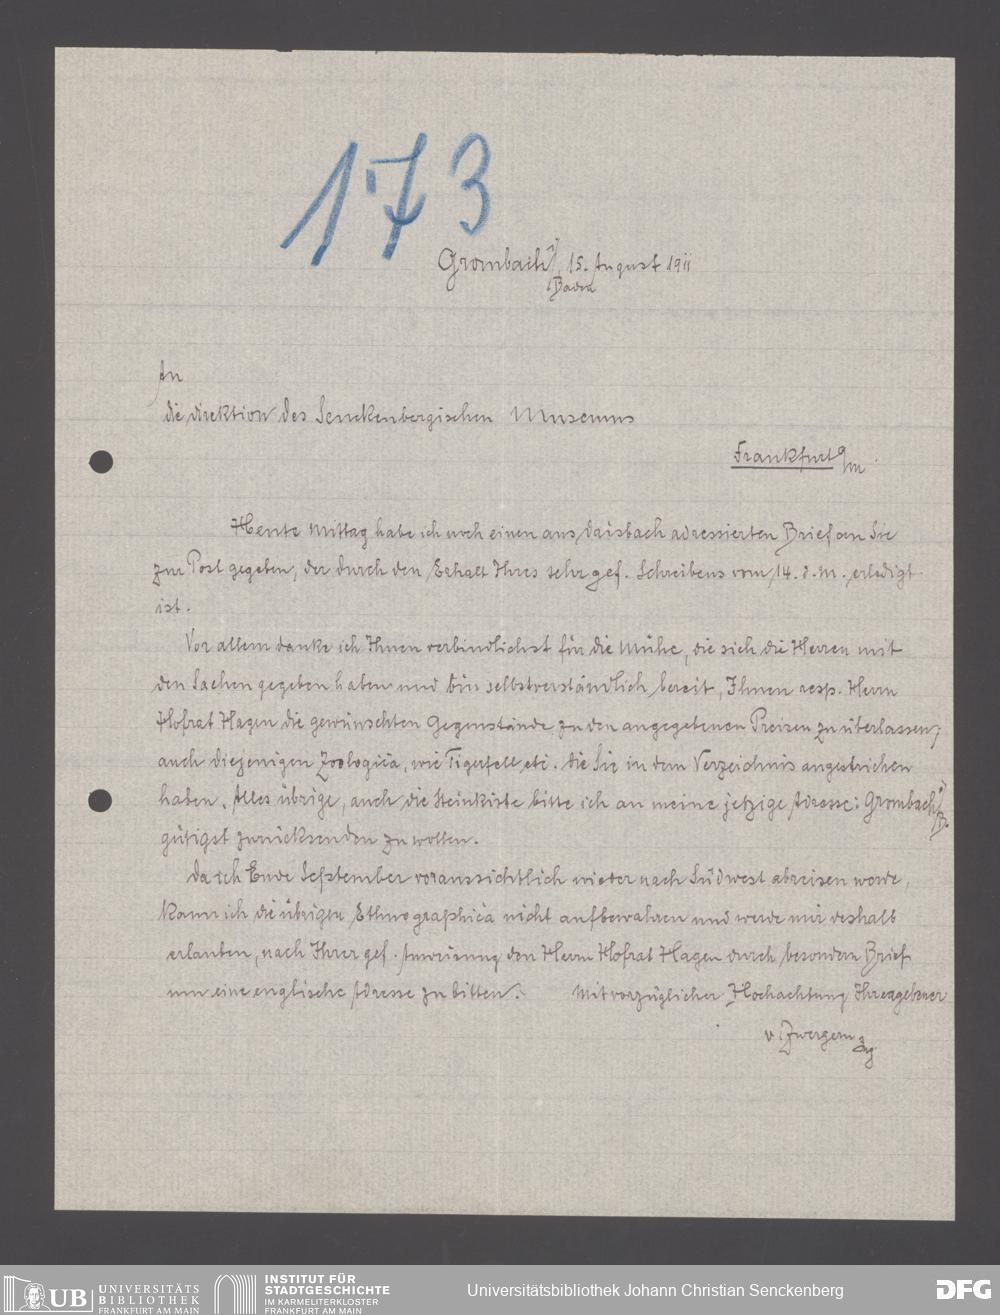 173
Grombach, 15. August 1911
Baden
An
die Direktion des Senckenbergischen Museums
Frankfurt a/m.
Heute Mittag habe ich noch einen aus Daisbach adressierten Brief an Sie
zur Post gegeben, der durch den Erhalt Ihres sehr gef. Schreibens vom 14. d. M. erledigt
ist.
Vor allem danke ich Ihnen verbindlichst für die Mühe, die sich die Herren mit
den Sachen gegeben haben und bin selbstverständlich bereit, Ihnen resp. Herrn
Hofrat Hagen die gewünschten Gegenstände zu den angegebenen Preisen zu überlassen,
auch diejenigen Zoologica, wie Tigerfell etc. die Sie in dem Verzeichnis angestrichen
haben. Alles übrige, auch die Steinkiste bitte ich an meine jetzige Adresse: Grombach i/B.
gütigst zurücksenden zu wollen.
Da ich Ende September voraussichtlich wieder nach Südwest abreisen werde,
kann ich die übrigen Ethnographica nicht aufbewahren und werde mir deshalb
erlauben, nach Ihrer gef. Anweisung den Herrn Hofrat Hagen durch besondern Brief
um eine englische Adresse zu bitten. Mit vorzüglicher Hochachtung Ihr ergebener
v. Zwergern
UB UNIVERSITÄTS
BIBLIOTHEK
FRANKFURT AM MAIN
INSTITUT FÜR
STADTGESCHICHTE
IM KARMELITERKLOSTER
FRANKFURT AM MAIN
Universitätsbibliothek Johann Christian Senckenberg
DFG